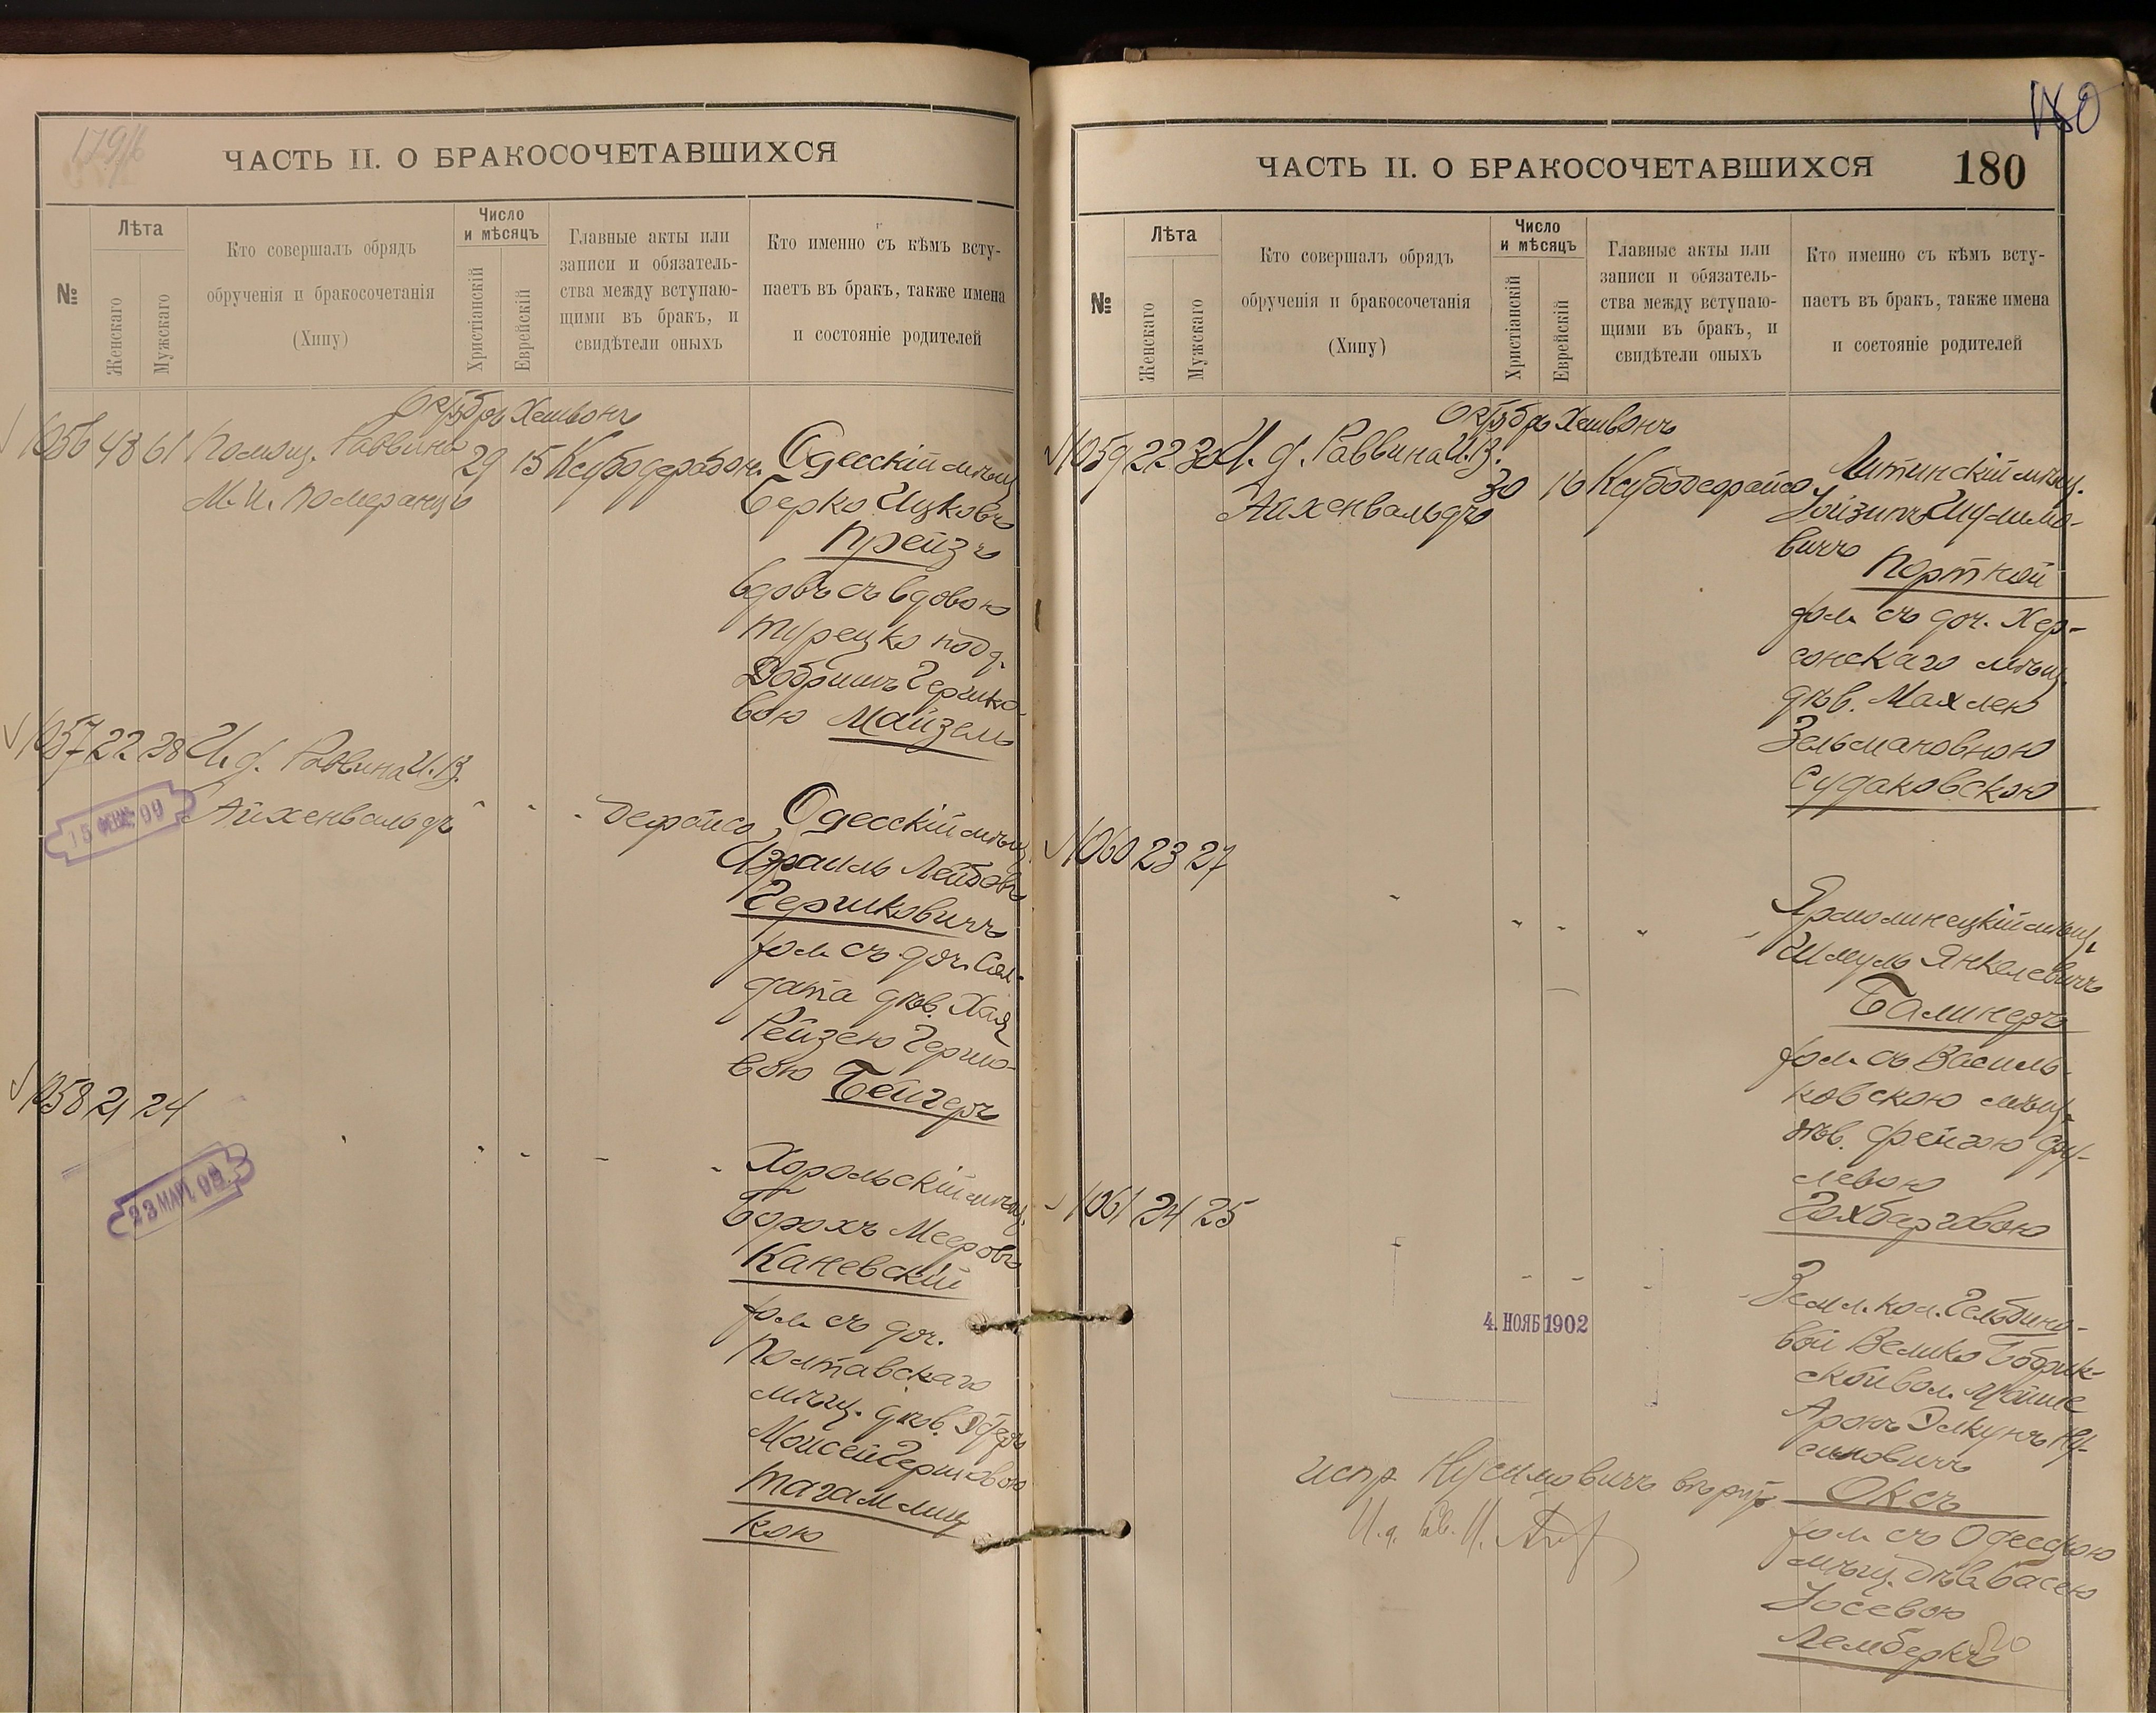 179/б
ЧАСТЬ II. О БРАКОСОЧЕТАВШИХСЯ
№
Лѣта
Женскаго
Мужскаго
Кто совершалъ обрядъ
обрученія и бракосочетанія
(Хипу)
Число
и мѣсяцъ
Христіанскій
Еврейскій
Главные акты или
записи и обязатель-
ства между вступаю-
щими въ бракъ, и
свидѣтели оныхъ
Кто именно съ кѣмъ всту-
паетъ въ бракъ, также имена
и состояніе родителей
Октябрь Хешвонъ
1056 48 61 Помощ. Раввина 29 15 Одесскій мѣщ.
М. И. Померанцъ
Берко Ицковъ
Прейзъ
вдовъ съ вдовою
турецко подд.
Добришъ Гершко-
вою Майзель
1057 22 28 И. д. Раввина И. В.
Айхенвальдъ
15 99
Одесскій мѣщ.
Израиль Лейбовъ
Гершковичъ
хол. съ доч. Сол-
дата дѣв. Хая
Рейзею Гершко-
вою Бейгеръ
1058 21 24
23 МАР.
Хорольскій мѣщ.
Борохъ Мееровъ
Каневскій
хол. съ доч.
Полтавскаго
мѣщ. дѣв.
Мойсей Гершковою
Тагамлиц
кою
180
ЧАСТЬ II. О БРАКОСОЧЕТАВШИХСЯ 180
№
Лѣта
Женскаго
Мужскаго
Кто совершалъ обрядъ
обрученія и бракосочетанія
(Хипу)
Число
и мѣсяцъ
Христіанскій
Еврейскій
Главные акты или
записи и обязатель-
ства между вступаю-
щими въ бракъ, и
свидѣтели оныхъ
Кто именно съ кѣмъ всту-
паетъ въ бракъ, также имена
и состояніе родителей
Октябрь Хешвонъ
1059 22 30 И. д. Раввина И. В. 30 16 Литинскій мѣщ.
Айхенвальдъ
Іойзипъ Шулимо-
вичъ
Портной
хол. съ доч. Хер-
сонскаго мѣщ.
дѣв. Махлею
Зельмановною
Судаковскою
1060 23 27
Ярмолинецкій мѣщ.
Шмуль Янкелевичъ
Балинеръ
хол. съ Василь-
ковскою мѣщ.
дѣв. Фейгою Сру-
левою
Гохберговою
1061 24 25
4. НОЯБ 1902
Земл. кол. Гельбино-
вой Велико Бобрик-
ской вол. Мойше
Аронъ Элкунъ Ну-
симовичъ
Оксъ
хол. съ Одесскою
мѣщ. дѣв. Басею
Іосевою
Лемберкъ
испр. Нусимовичъ вѣрно
И. д. Рав. И.